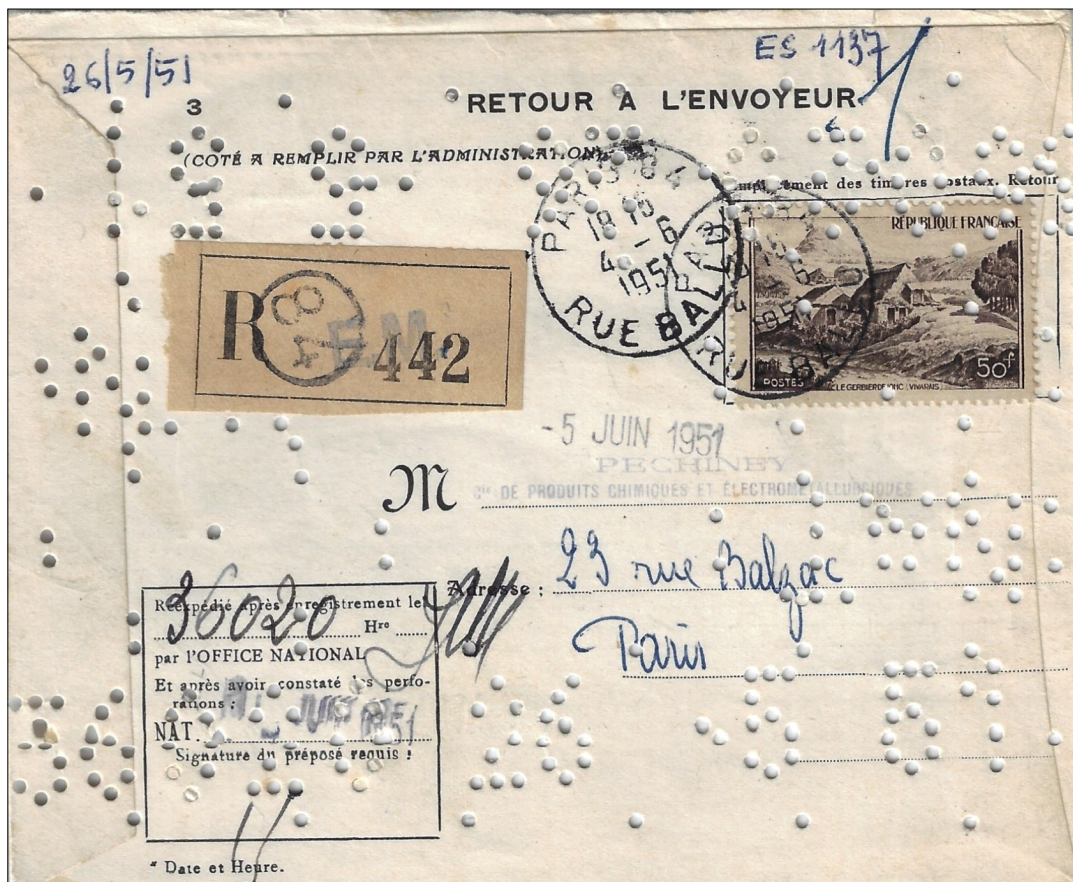 26/5/51
ES 1137
3
RETOUR A L'ENVOYEUR
(COTÉ A REMPLIR PAR L'ADMINISTRATION)
PARIS 84
18 15
4 - 6
1951
RUE BALLU
des timbres postaux. Retour
RÉPUBLIQUE FRANÇAISE
50f
POSTES
LE GERBIER DE JONC (VIVARAIS)
R
84
E.M.
442
- 5 JUIN 1951
PECHINEY
Cie DE PRODUITS CHIMIQUES ET ÉLECTROMÉTALLURGIQUES
M
Adresse :
23 rue Balzac
Paris
Réexpédié après enregistrement le*
36020
Hre
par l'OFFICE NATIONAL
Et après avoir constaté les perfo-
rations :
NAT.
JUIN 1951
Signature du préposé requis :
* Date et Heure.